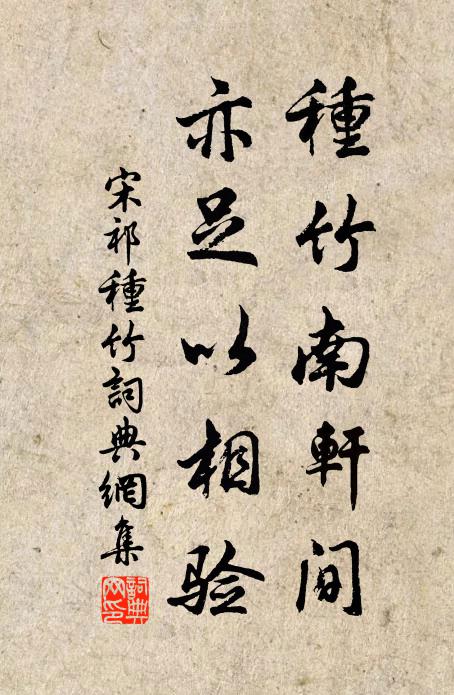 種竹南軒间
亦足以相验
宋祁種竹詞典網集
詞典網印